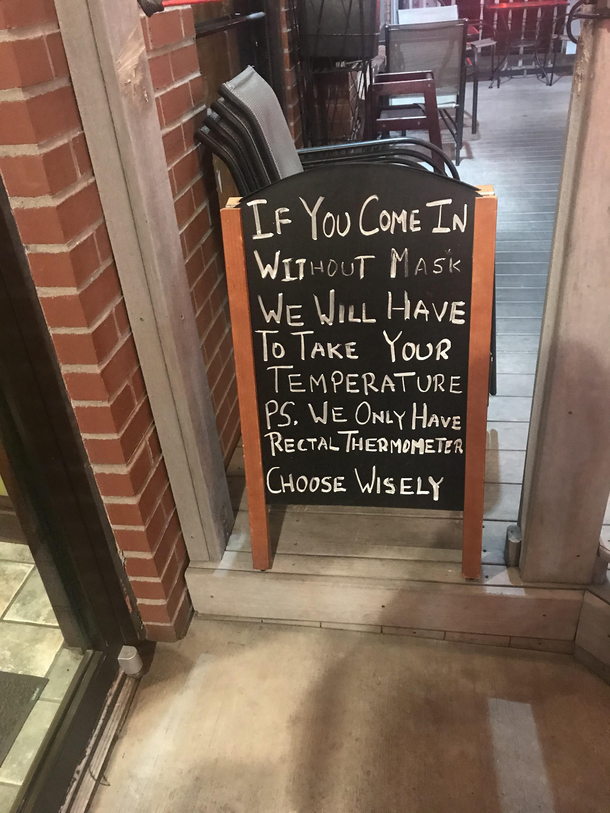 If You Come In
Without Mask
We Will Have
To Take Your
Temperature
PS. We Only Have
Rectal Thermometer
Choose Wisely